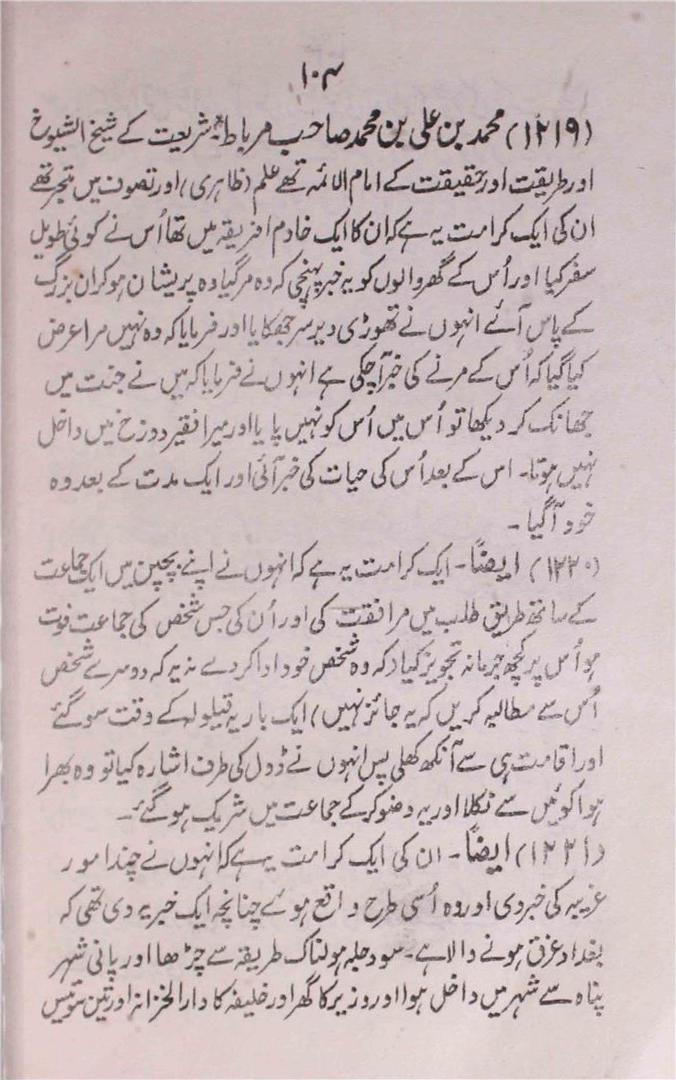 ۱۰۴
(۱۲۱۹) محمد بن علی بن محمد صاحب مرباط۔ شریعت کے شیخ الشیوخ
اور طریقت اور حقیقت کے امام الائمہ تھے علم (ظاہری) اور تصوف میں متبحر تھے
ان کی ایک کرامت یہ ہے کہ ان کا ایک خادم افریقہ میں تھا اُس نے کوئی طویل
سفر کیا اور اُس کے گھر والوں کو یہ خبر پہنچی کہ وہ مر گیا وہ پریشان ہو کر ان بزرگ
کے پاس آئے انہوں نے تھوڑی دیر سر جھکایا اور فرمایا کہ وہ نہیں مرا عرض
کیا گیا کہ اُس کے مرنے کی خبر آچکی ہے انہوں نے فرمایا کہ میں نے جنت میں
جھانک کر دیکھا تو اُس میں اُس کو نہیں پایا اور میرا فقیر دوزخ میں داخل
نہیں ہوتا۔ اس کے بعد اُس کی حیات کی خبر آئی اور ایک مدت کے بعد وہ
خود آ گیا۔
(۱۲۲۰) ایضاً۔ ایک کرامت یہ ہے کہ انہوں نے اپنے بچپن میں ایک جماعت
کے ساتھ طریق طلب میں مرافقت کی اور اُن کی جس شخص کی جماعت فوت
ہو اُس پر کچھ جرمانہ تجویز کیا (کہ وہ شخص خود ادا کر دے نہ یہ کہ دوسرے شخص
اُس سے مطالبہ کریں کہ یہ جائز نہیں) ایک بار یہ قیلولہ کے وقت سو گئے
اور اقامت ہی سے آنکھ کھلی پس انہوں نے ڈول کی طرف اشارہ کیا تو وہ بھرا
ہوا کوئیں سے نکلا اور یہ وضو کر کے جماعت میں شریک ہو گئے۔
(۱۲۲۱) ایضاً۔ ان کی ایک کرامت یہ ہے کہ انہوں نے چند امور
غریبہ کی خبر دی اور وہ اُسی طرح واقع ہوئے چنانچہ ایک خبر یہ دی تھی کہ
بغداد غرق ہونے والا ہے۔ سو دجلہ ہولناک طریقہ سے چڑھا اور پانی شہر
پناہ سے شہر میں داخل ہوا اور وزیر کا گھر اور خلیفہ کا دار الخزانہ اور تین سو تیس